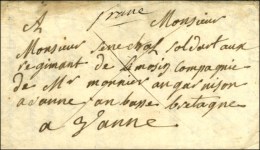 franc
A Monsieur
Monsieur Senechal soldart aux
regimant de limosin Compagnie
de Mr monnier au gar nison
a vanne an basse bretagne
a Vanne